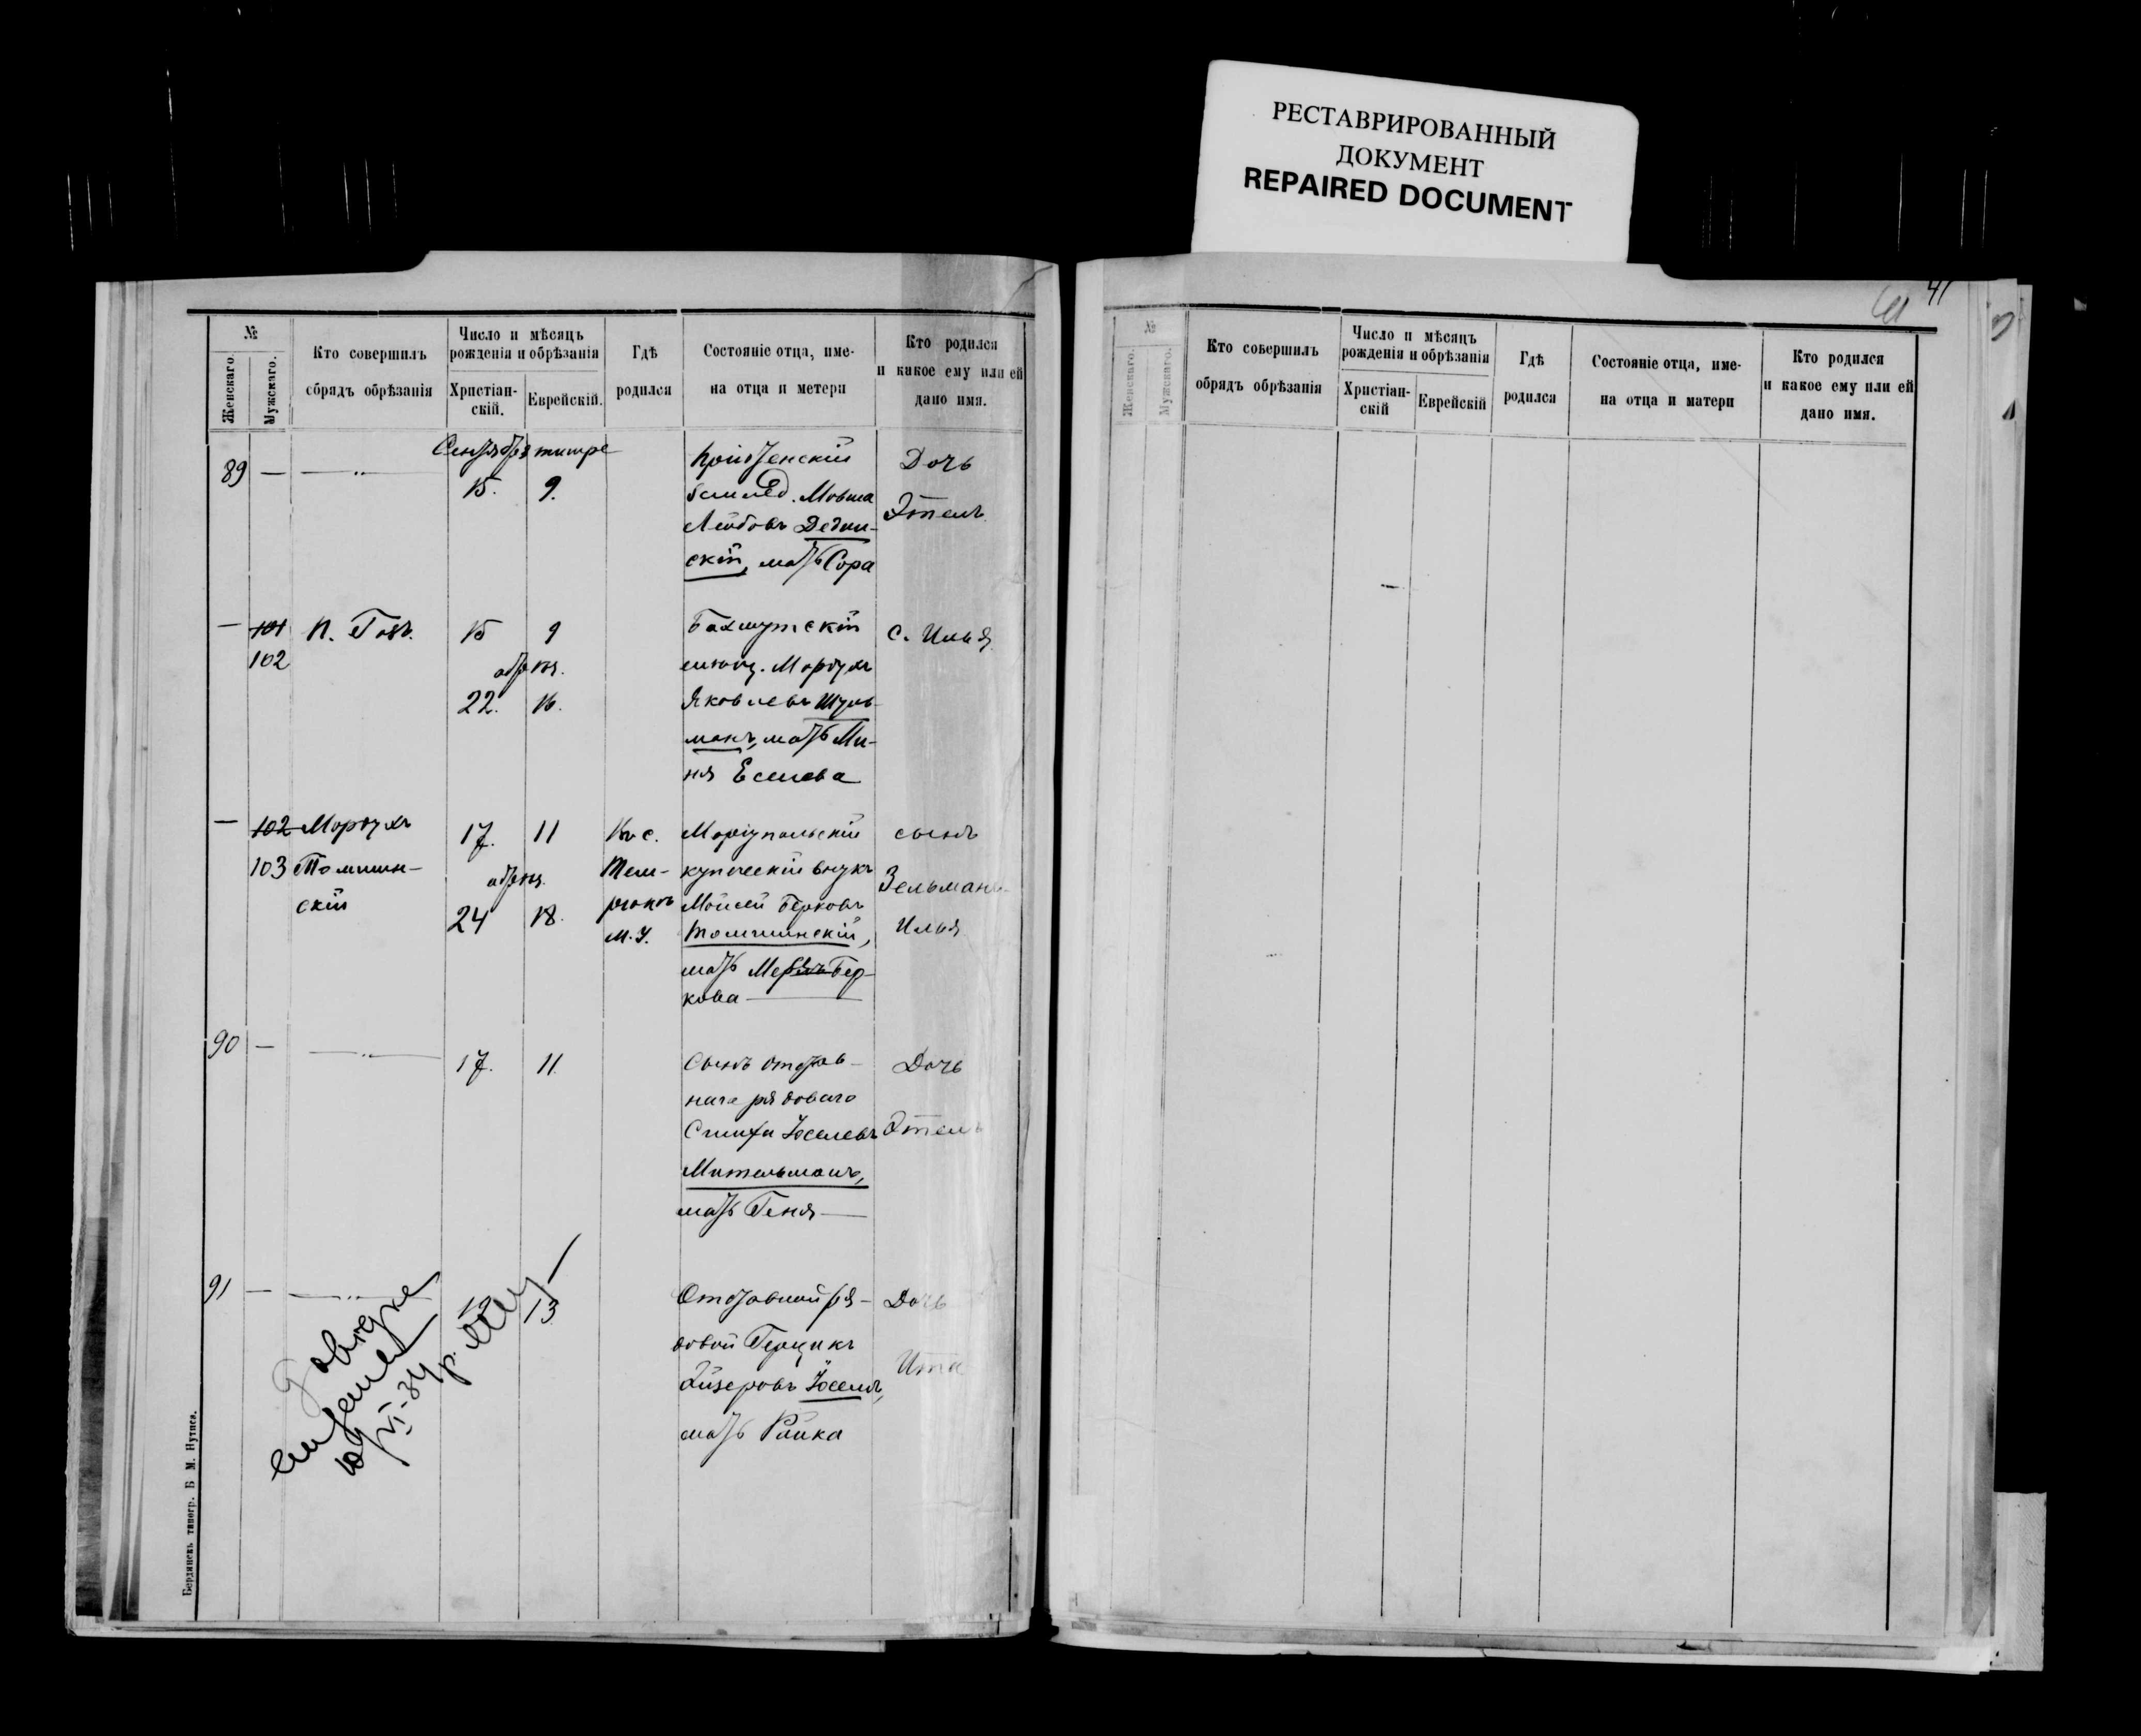 РЕСТАВРИРОВАННЫЙ
ДОКУМЕНТ
REPAIRED DOCUMENT
41
№
Женскаго.
Мужскаго.
Кто совершилъ
обрядъ обрѣзанія
Число и мѣсяцъ
рожденія и обрѣзанія
Христіан-
скій.
Еврейскій.
Гдѣ
родился
Состояніе отца, име-
на отца и метери
Кто родился
и какое ему или ей
дано имя.
Сентября тишре
89 — —"—
15. 9.
Мовша
Лейбовъ Дедин-
скій, мать Сора
Дочь
Этель
— 101 П. Говъ.
102
15 9
обрѣз.
22. 16.
Бахмутскій
мѣщ. Мордухъ
Яковлевъ Шуль-
манъ, мать Ми-
ня
с. Илья
— 102 Мордухъ
103 Томшин-
скій
17. 11
обрѣз.
24 18.
Въ с.
Тем-
рюкъ
М. У.
Маріупольскій
купеческій внукъ
Мойсей Берковъ
Томшинскій,
мать Бер-
кова
сынъ
Зельманъ-
Илья
90 — —"—
17. 11.
Сынъ отстав-
наго рядоваго
Симха Іоселевъ
Мительманъ,
мать Геня
Дочь
Этель
91 — —"—
19 13
Отставной ря-
довой Герцикъ
Лйзеровъ Іоселъ,
мать Райка
Дочь
Ита
Бердянскъ типогр. Б М. Нутиса.
№
Женскаго.
Мужскаго.
Кто совершилъ
обрядъ обрѣзанія
Число и мѣсяцъ
рожденія и обрѣзанія
Христіан-
скій
Еврейскій
Гдѣ
родился
Состояніе отца, име-
на отца и матери
Кто родился
и какое ему или ей
дано имя.